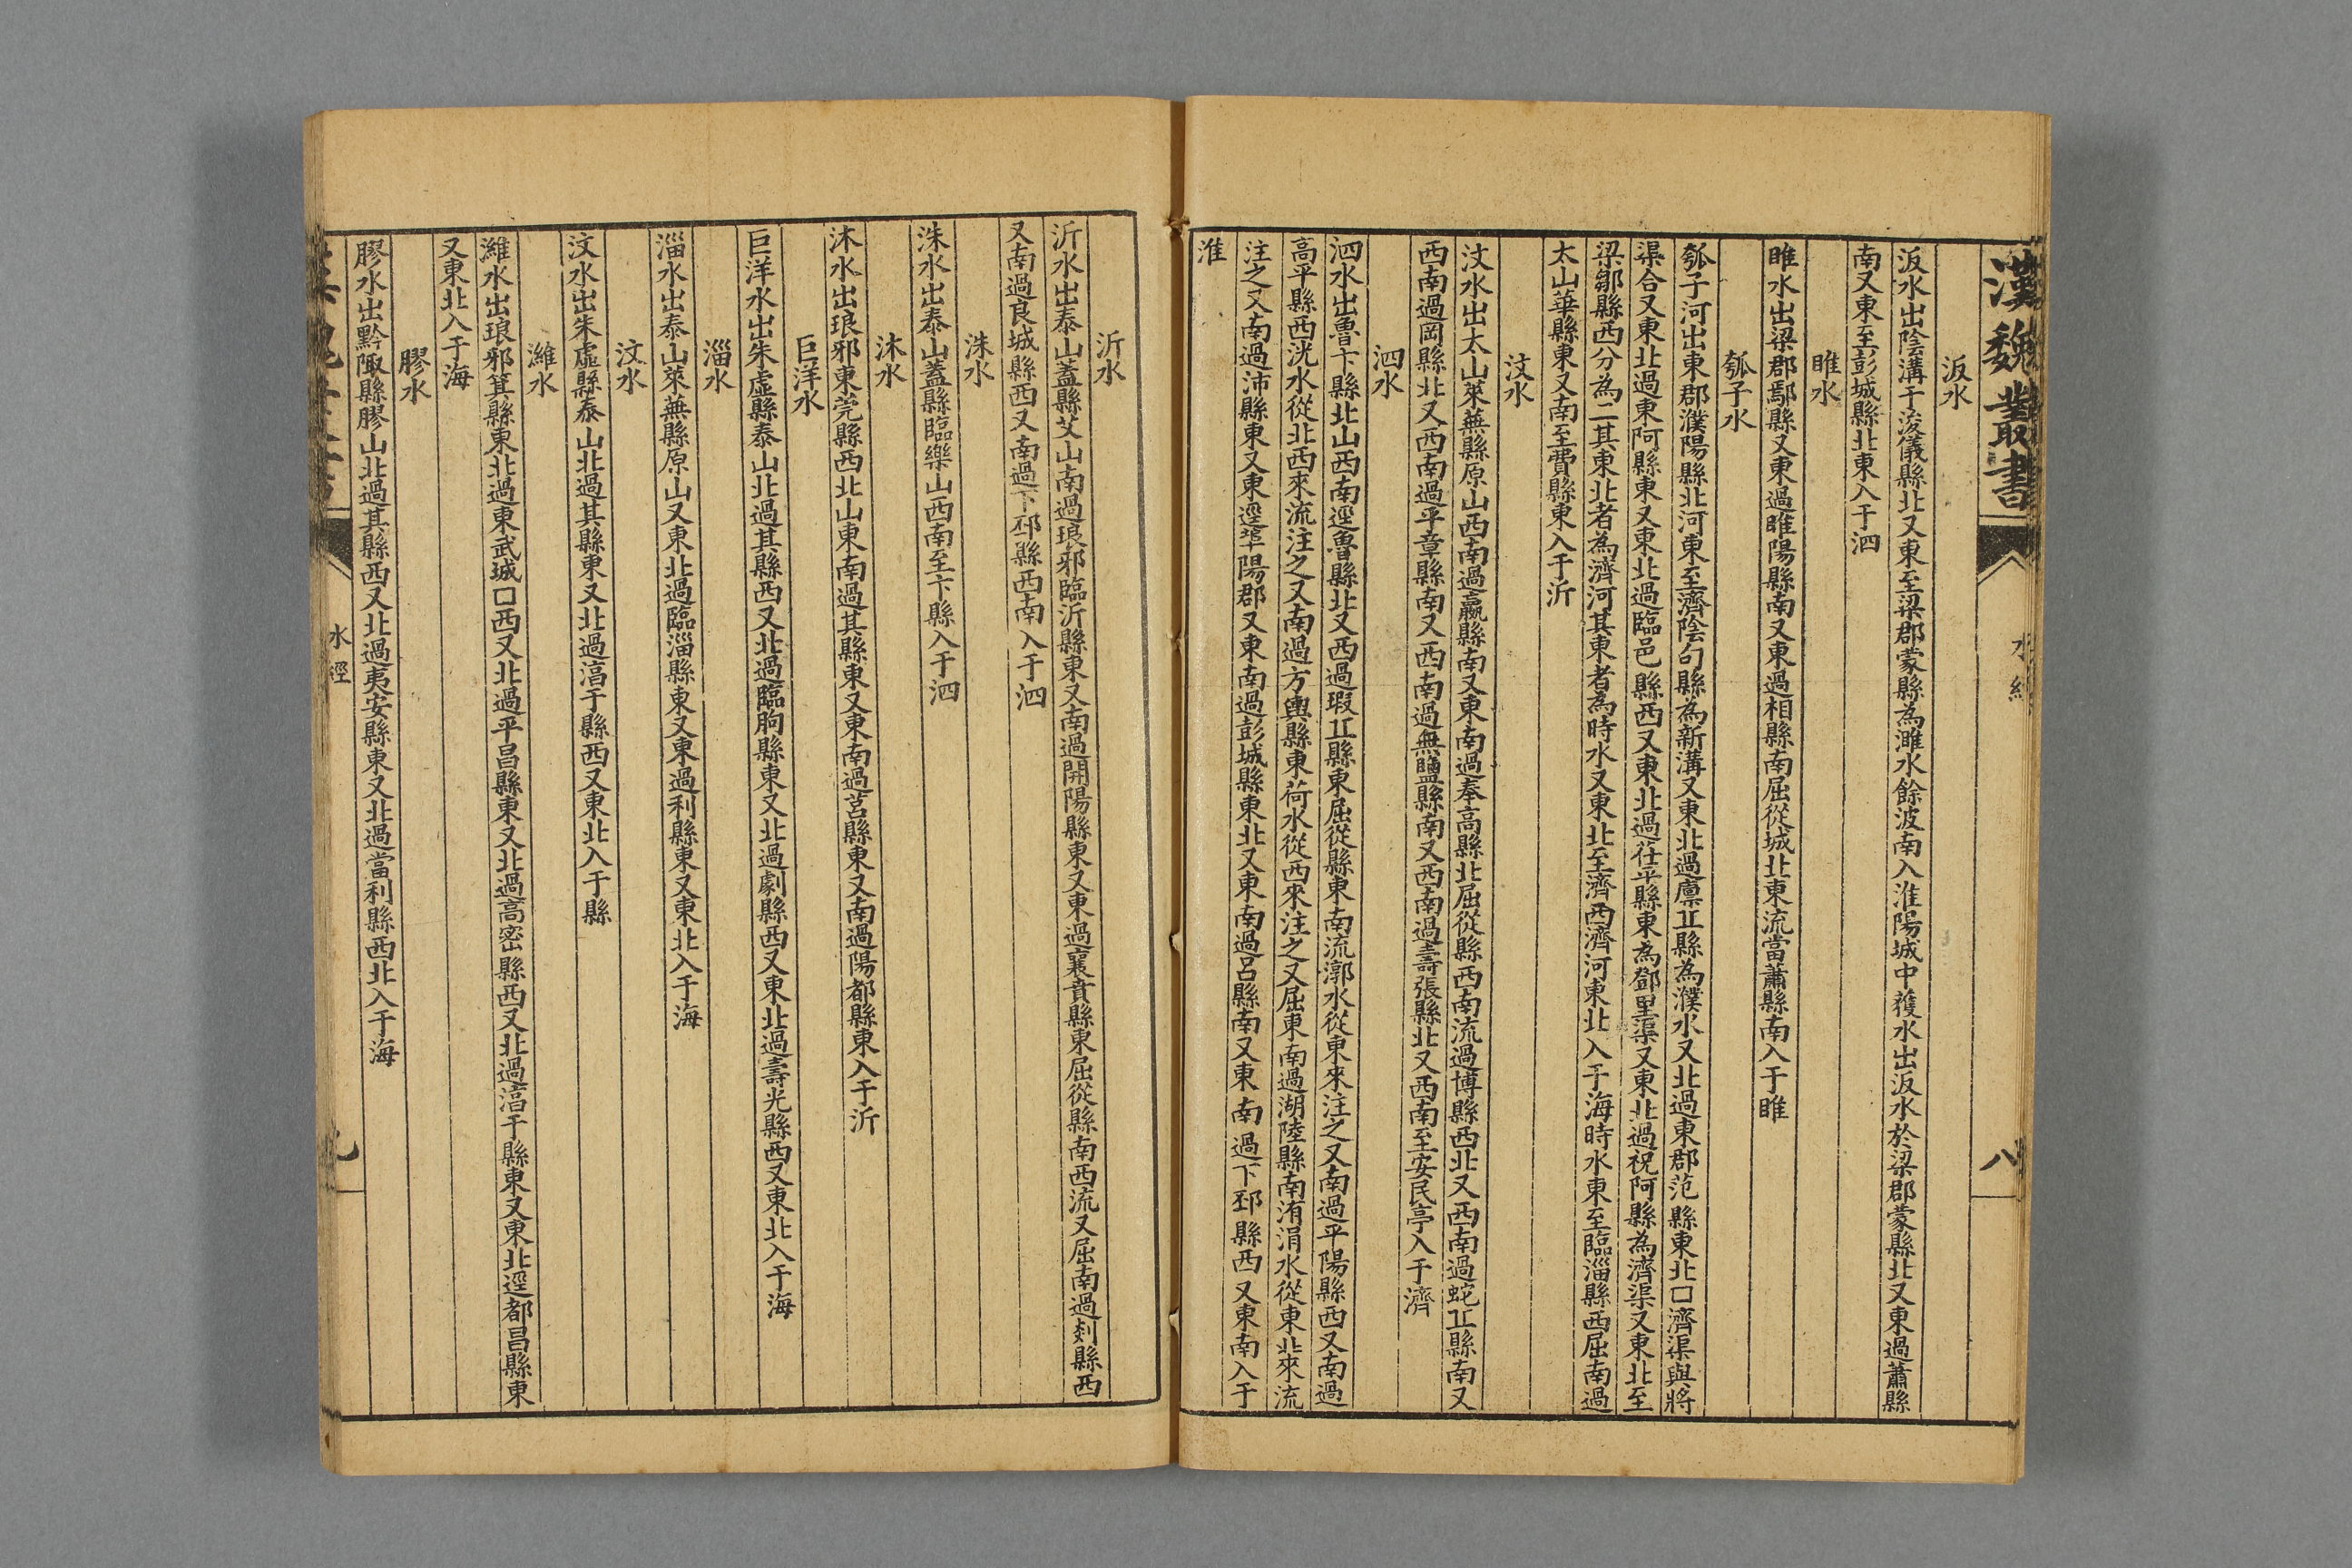 漢魏叢書
八
汳水
汳水出陰溝于浚儀縣北又東至梁郡蒙縣為濉水餘波南入淮陽城中獲水出汳水於梁郡蒙縣北又東過蕭縣
南又東至彭城縣北東入于泗
睢水
睢水出梁郡鄢縣又東過睢陽縣南又東過相縣南屈從城北東流當蕭縣南入于睢
瓠子水
瓠子河出東郡濮陽縣北河東至濟陰句縣為新溝又東北過廩丘縣為濮水又北過東郡范縣東北口濟渠與將
渠合又東北過東阿縣東又東北過臨邑縣西又東北過茌平縣東為鄧里渠又東北過祝阿縣為濟渠又東北至
梁鄒縣西分為二其東北者為濟河其東者為時水又東北至濟西濟河東北入于海時水東至臨淄縣西屈南過
太山華縣東又南至費縣東入于沂
汶水
汶水出太山萊蕪縣原山西南過嬴縣南又東南過奉高縣北屈從縣西南流過博縣西北又西南過蛇丘縣南又
西南過岡縣北又西南過平章縣南又西南過無鹽縣南又西南過壽張縣北又西南至安民亭入于濟
泗水
泗水出魯卞縣北山西南逕魯縣北又西過瑕丘縣東屈從縣東南流漷水從東來注之又南過平陽縣西又南過
高平縣西洸水從北西來流注之又南過方輿縣東荷水從西來注之又屈東南過湖陸縣南洧涓水從東北來流
注之又南過沛縣東又東逕苹陽郡又東南過彭城縣東北又東南過呂縣南又東南過下邳縣西又東南入于
淮
沂水
沂水出泰山蓋縣艾山南過琅邪臨沂縣東又南過開陽縣東又東過襄賁縣東屈從縣南西流又屈南過剡縣西
又南過良城縣西又南過下邳縣西南入于泗
洙水
洙水出泰山蓋縣臨樂山西南至卞縣入于泗
沐水
沐水出琅邪東莞縣西北山東南過其縣東又東南過莒縣東又南過陽都縣東入于沂
巨洋水
巨洋水出朱虛縣泰山北過其縣西又北過臨朐縣東又北過劇縣西又東北過壽光縣西又東北入于海
淄水
淄水出泰山萊蕪縣原山又東北過臨淄縣東又東過利縣東又東北入于海
汶水
汶水出朱虛縣泰山北過其縣東又北過淯于縣西又東北入于縣
濰水
濰水出琅邪箕縣東北過東武城口西又北過平昌縣東又北過高密縣西又北過淯于縣東又東北逕都昌縣東
又東北入于海
膠水
膠水出黔陬縣膠山北過其縣西又北過夷安縣東又北過當利縣西北入于海
水經